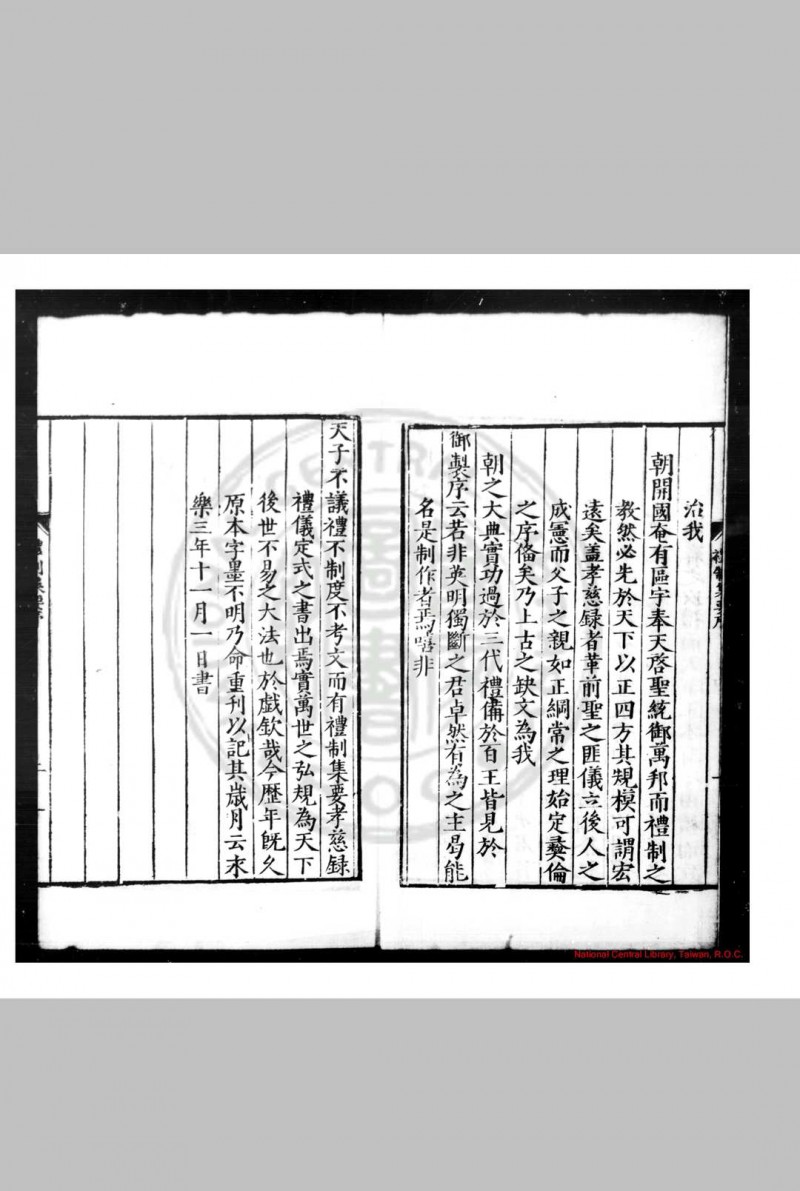 治我
朝開國奄有區宇奉天啓聖統御萬邦而禮制之
教然必先於天下以正四方其規模可謂宏
遠矣盖孝慈録者革前聖之匪儀立後人之
成憲而父子之親如正綱常之理始定彜倫
之序俻矣乃上古之缺文為我
朝之大典實功過於三代禮備於百王皆見於
御製序云若非英明獨斷之君卓然有為之主曷能
名是制作者焉嘻非
天子不議禮不制度不考文而有禮制集要孝慈録
禮儀定式之書出焉實萬世之弘規為天下
後世不易之大法也於戯欽哉今歴年旣久
原本字畫不明乃命重刊以記其歲月云永
樂三年十一月一日書
National Central Library, Taiwan, R.O.C.